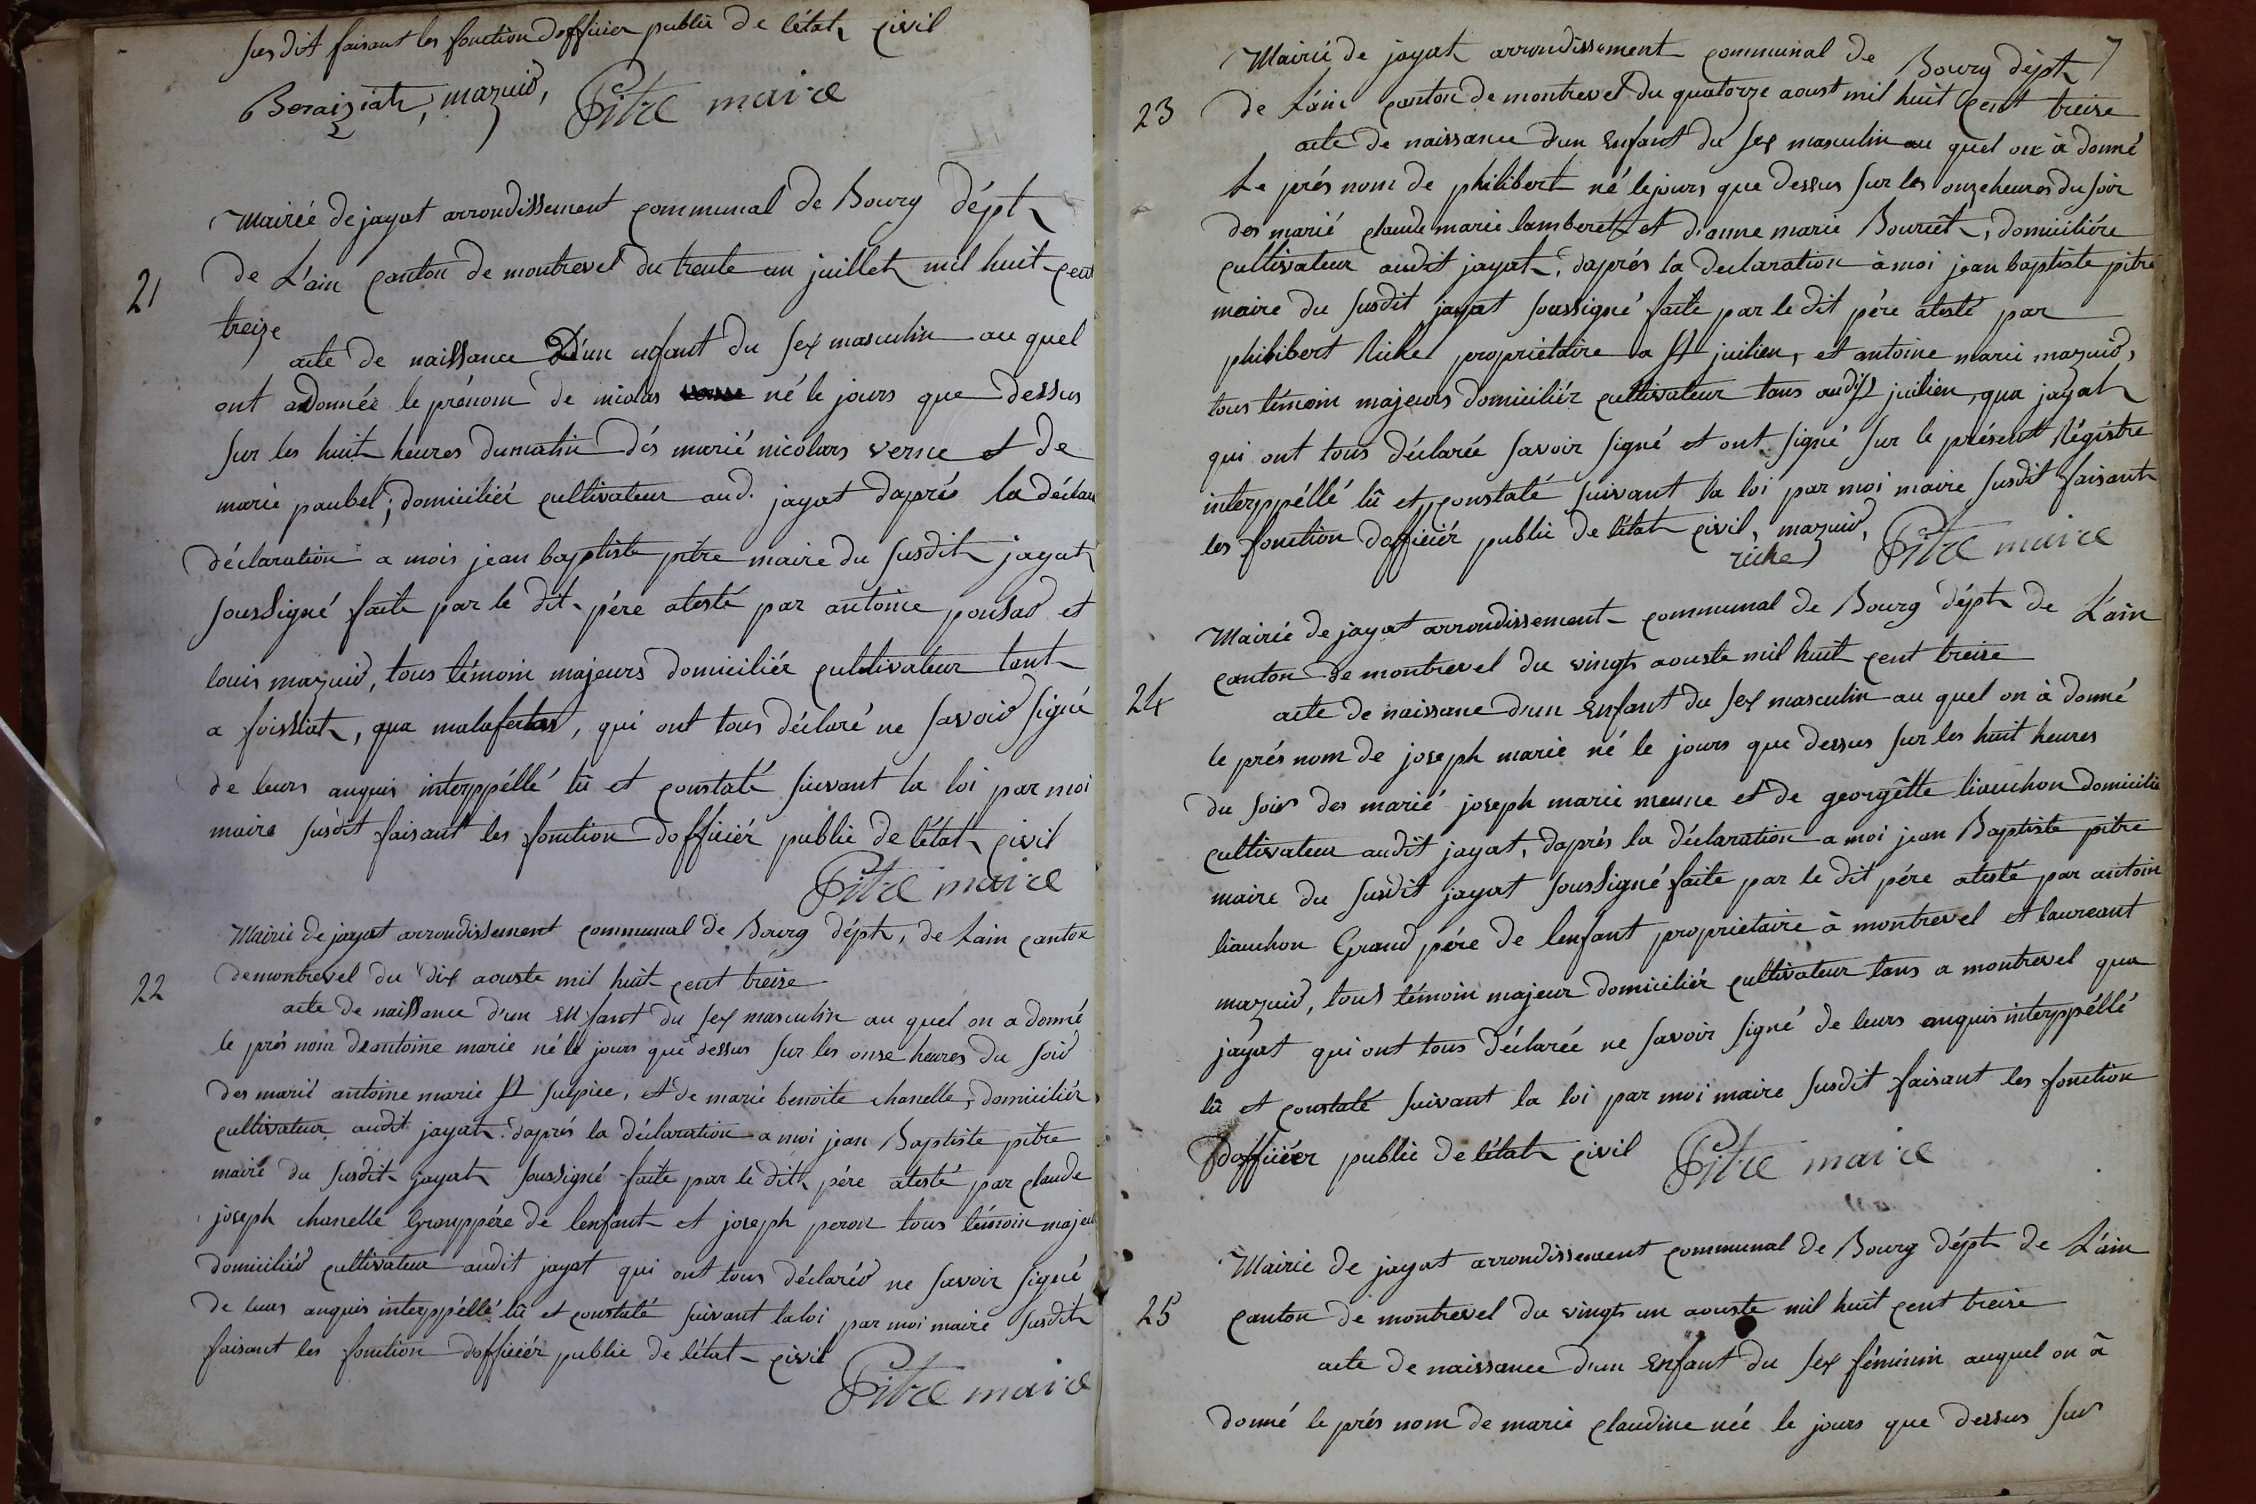 susdit faisant les fonction dofficier public de létat civil
Beraiziat, mazuid, Pitre maire
Mairée de jayat arrondissement communal de Bourg dépt
21
de L'ain canton de montrevel du trente un juillet mil huit cent
treize
acte de naissance D'un enfant du sex masculin au quel
ont adonnée le prénom de nicolas né le jours que dessus
sur les huit heures dumatin dés marié nicolars verne et de
marie paubel; domicilié cultivateur aud. jayat daprés la déclar
déclaration a mois jean baptiste pitre maire du susdit jayat
soussigné faite par le dit pére atesté par antoine ponsad et
louis mazuid, tous témoin majeurs domiciliér cultivateur tant
a foissiat, qua malafertas, qui ont tous déclaré ne savoir signé
de leurs anquis interppéllé lû et constaté suivant la loi par moi
maire susdit faisant les fonction dofficiér public de létat civil
Pitre maire
Mairie de jayat arrondissement communal de Bourg dépt, de Lain canton
22
demontrevel du dix aouste mil huit cent treise
acte de naissance d'un enfant du sex masculin au quel on a donné
le prés nom deantoine marie né le jours que dessus sur les onse heures du soir
des marié antoine marie St sulpice, et de marie benoite chanelle, domiciliér
cultivateur audit jayat. daprés la déclaration a moi jean Baptiste pitre
maire du susdit jayat soussigné faite par le dit pére atesté par claude
joseph chanelle Grouppére de lenfant et joseph peron tous témoin majeu
domiciliér cultivateur audit jayat qui ont tous déclaréd ne savoir signé
de leurs anquis interppéllé lû et constaté suivant laloi par moi maire susdit
faisant les fonction dofficiér public de létat civil
Pitre maire
7
Mairie de jayat arrondissement communal de Bourg dépt
23
de L'ain canton de montrevel du quatorze aoust mil huit cent treise
acte de naissance d'un Enfant du sex masculin au quel on à donné
Le prés nom de philibert né lejours que dessus sur les onzeheures du soir
des marié claude marie lamberet et d'anne marie Bouruèt, domiciliére
cultivateur audit jayat, daprés la declaration à moi jean baptiste pitre
maire du susdit jayat soussigné faite par le dit pére atesté par
philibert Riche propriétaire a St juilien, et antoine marie mazuid,
tous témoin majeurs domiciliér cultivateur tans audit St juilien, qua jayat
qui ont tous déclarée savoir signé et ont signé sur le présent Régistre
interppéllé lû et constaté suivant la loi par moi maire susdit faisant
les fonction dofficiér public de létat civil, mazuid,
riche Pitre maire
Mairie de jayat arrondissement communal de Bourg dépt de L'ain
canton de montrevel du vingts aouste mil huit cent treise
24
acte de naissane d'un Enfant du sex masculin au quel on à donné
le prés nom de joseph marie né le jours que dessus sur les huit heures
du soir des marié joseph marie meune et de georgêtte liauchon domicilié
cultivateur audit jayat, daprés la déclaration a moi jean Baptiste pitre
maire du susdit jayat soussigné faite par le dit pére atesté par antoin
liauchon Grand pére de lenfant propriétaire à montrevel et laureant
mazuid, tous témoin majeur domiciliér cultivateur tans a montrevel qua
jayat qui ont tous déclarée ne savoir signé de leurs anquis interppéllé
lû et constaté suivant la loi par moi maire susdit faisant les fonction
dofficiér public de létat civil Pitre maire
Mairie de jayat arrondissement communal de Bourg dépt de L'ain
25
canton de montrevel du vingts un aouste mil huit cent treise
acte de naissance d'un Enfant du sex féminin auquel on à
donné le prés nom de marie claudine née le jours que dessus sur